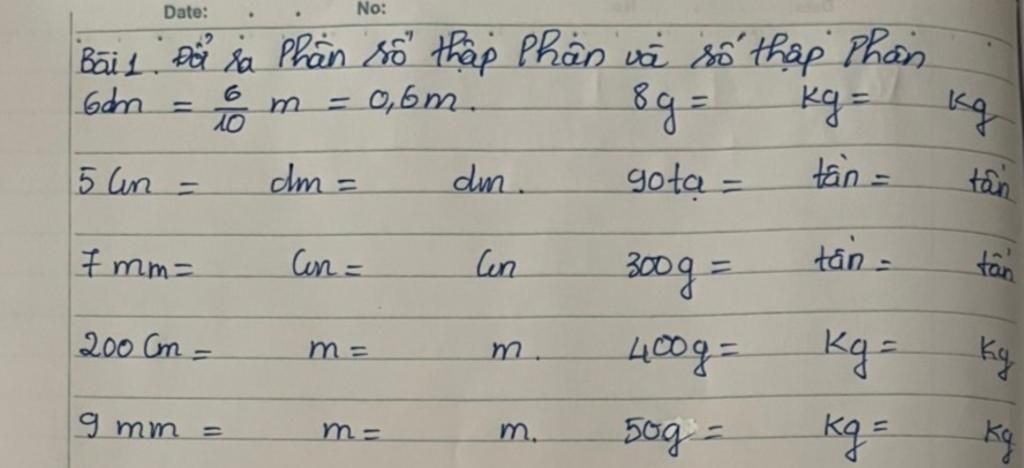 Date: . . No:
Bài 1. Đổi ra Phân số thập Phân và số thập Phân
6dm = 6/10 m = 0,6m. 8g = kg = kg
5 cm = dm = dm. 90tạ = tấn = tấn
7 mm = cm = cm 300g = tấn = tấn
200 cm = m = m. 400g = kg = kg
9 mm = m = m. 50g = kg = kg